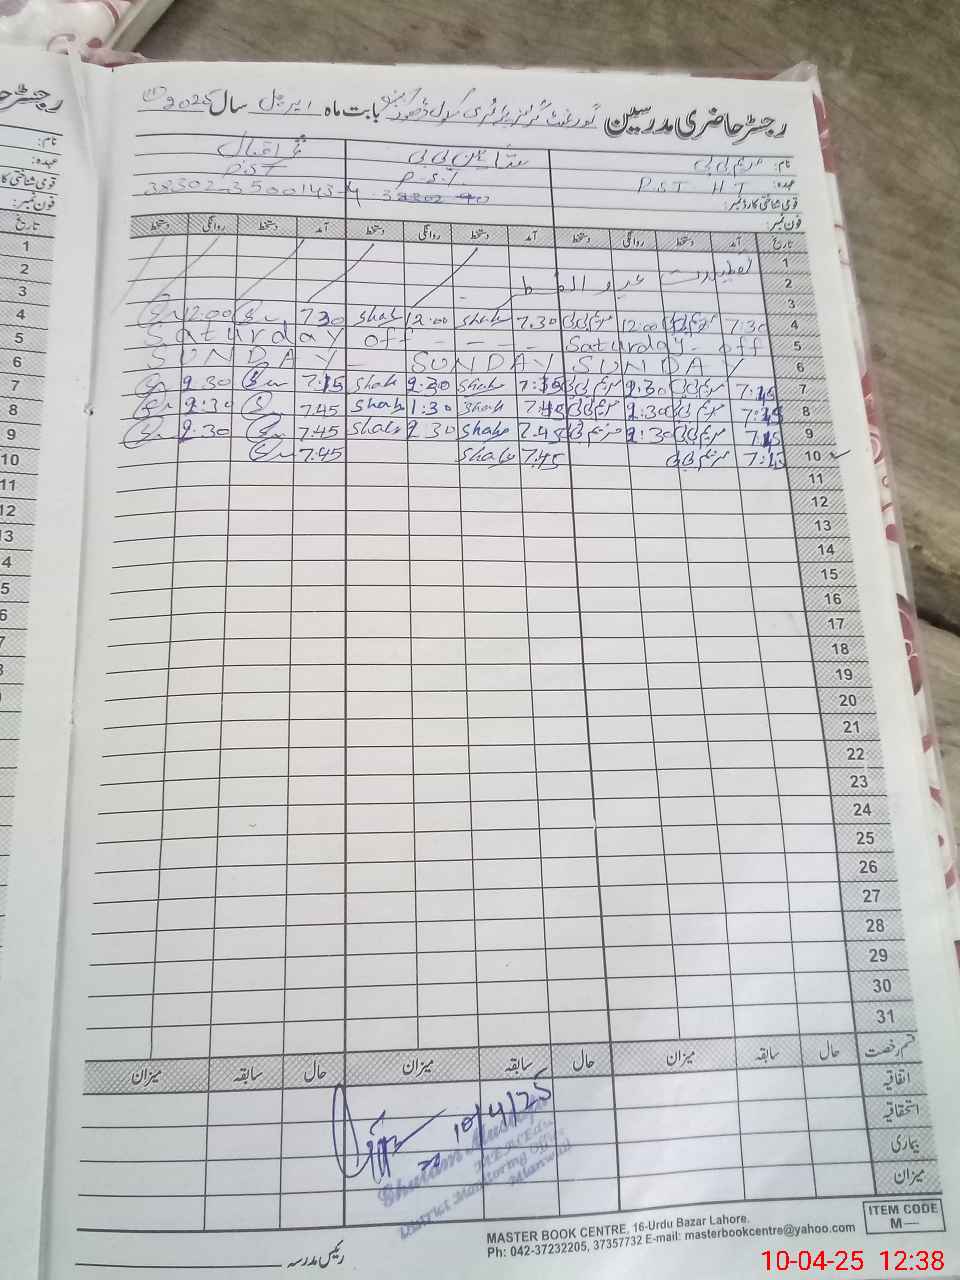 رجسٹر حاضری مدرسین گورنمنٹ گرلز پرائمری سکول بابت ماہ اپریل سال 2025
نام: مریم بی بی
محمد اقبال
عہدہ: P.S.T H T
P.S.T.
P.S.T
قومی شناختی کارڈ نمبر:
38302-3500143-4
فون نمبر:
تاریخ آمد دستخط روانگی دستخط آمد دستخط روانگی دستخط آمد دستخط روانگی دستخط
1
2 تعطیلات عید الفطر
3
4 7:30 مریم بی بی 12:00 مریم بی بی 7.30 Shah 12.00 Shah 7.30 12.00
5 Saturday - off Saturday off - - - -
6 SUNDAY SUNDAY SUNDAY -
7 7:45 مریم بی بی 2:30 مریم بی بی 7:45 Shah 2:30 Shah 7:45 2:30
8 7:45 مریم بی بی 2:30 مریم بی بی 7:45 Shah 1:30 Shah 7.45 2:30
9 7:45 مریم بی بی 2:30 مریم بی بی 7.45 Shah 2:30 Shah 7.45 2:30
10 7:45 مریم بی بی 7.45 Shah 7.45
11
12
13
14
15
16
17
18
19
20
21
22
23
24
25
26
27
28
29
30
31
قسم رخصت حال سابقہ میزان حال سابقہ میزان حال سابقہ میزان
اتفاقیہ
استحقاقیہ
بیماری
میزان
10/4/25
District Monitoring Officer
Mianwali
رئیس مدرسہ
MASTER BOOK CENTRE, 16-Urdu Bazar Lahore.
Ph: 042-37232205, 37357732 E-mail: masterbookcentre@yahoo.com
ITEM CODE
M—
رجسٹر حا
نام:
عہدہ:
قومی شناختی کا
فون نمبر:
تاریخ
1
2
3
4
5
6
7
8
9
10
11
12
13
10-04-25 12:38